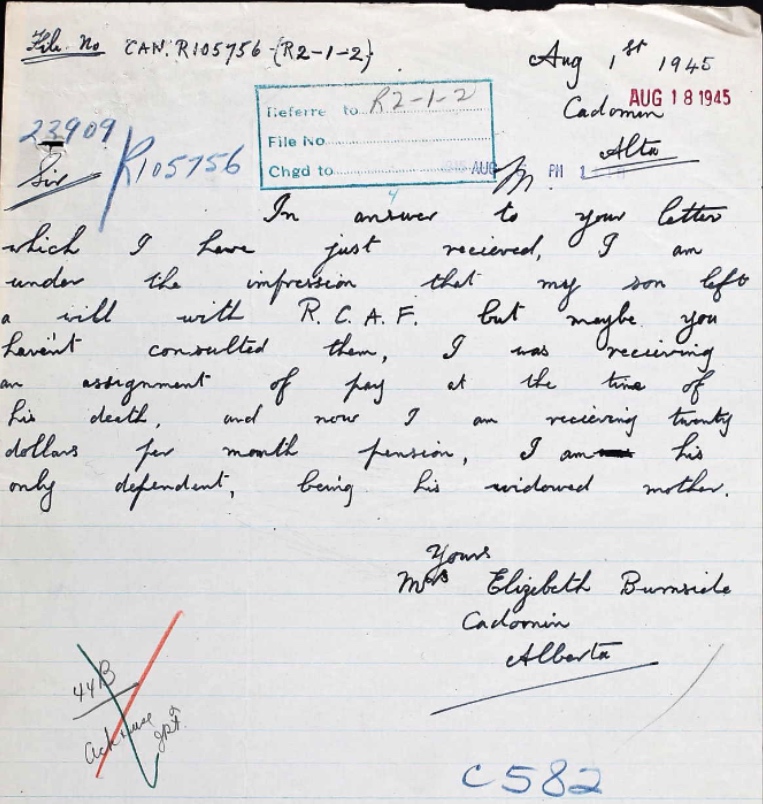 File. No CAN. R105756 (R2-1-2)
Aug 1st 1945
AUG 18 1945
Cadomin
Alta
Referre to R2-1-2
File No
Chgd to AUG PM 1
23909
R105756
Sir
In answer to your letter
which I have just recieved, I am
under the impression that my son left
a will with R.C.A.F. but maybe you
haven't consulted them, I was recieving
an assignment of pay at the time of
his death, and now I am recieving twenty
dollars per month pension, I am his
only dependent, being his widowed mother.
Yours
Mrs Elizebeth Burnside
Cadomin
Alberta
44B
C582